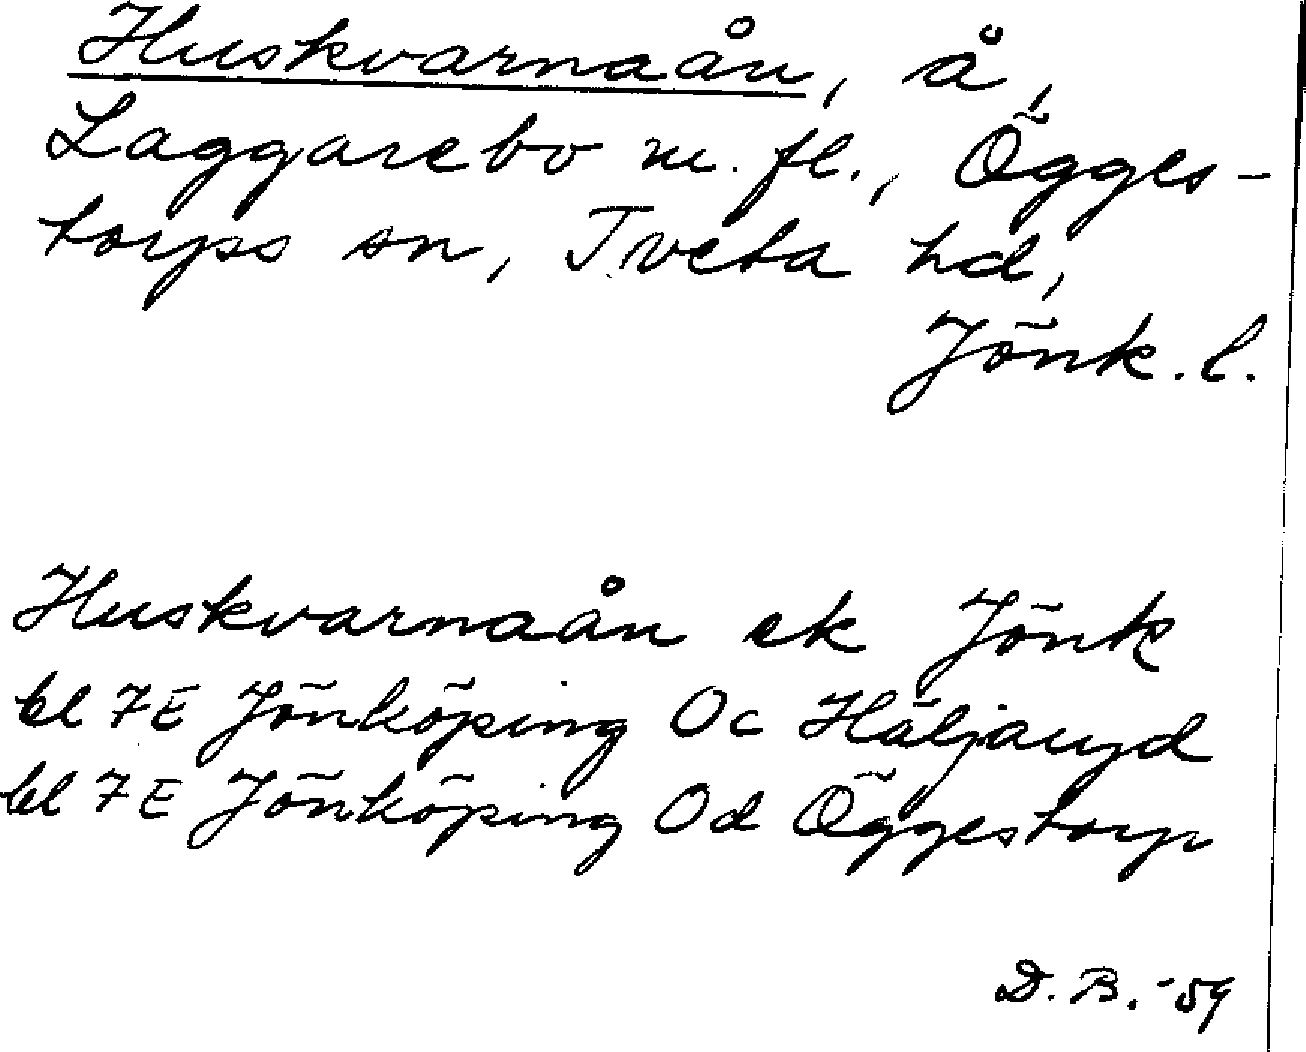 Huskvarnaån, å,
Laggarebo m. fl., Ögges-
torps sn, Tveta hd,
Jönk. l.
Huskvarnaån ek Jönk
bl 7E Jönköping 0c Häljaryd
bl 7E Jönköping 0d Öggestorp
D. B. -59